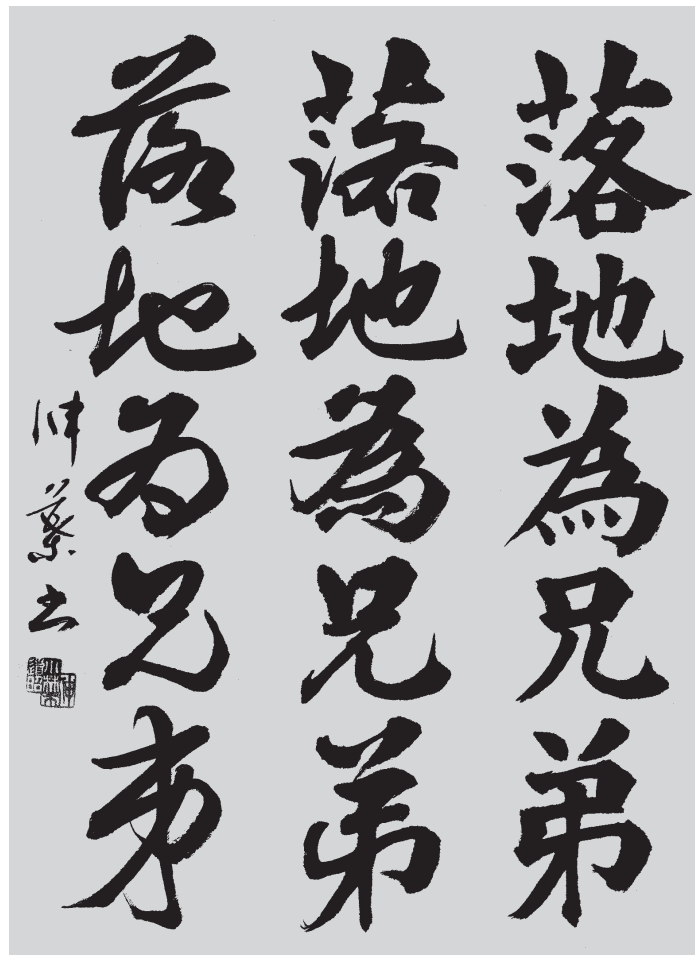 落地為兄弟
落地為兄弟
落地為兄弟